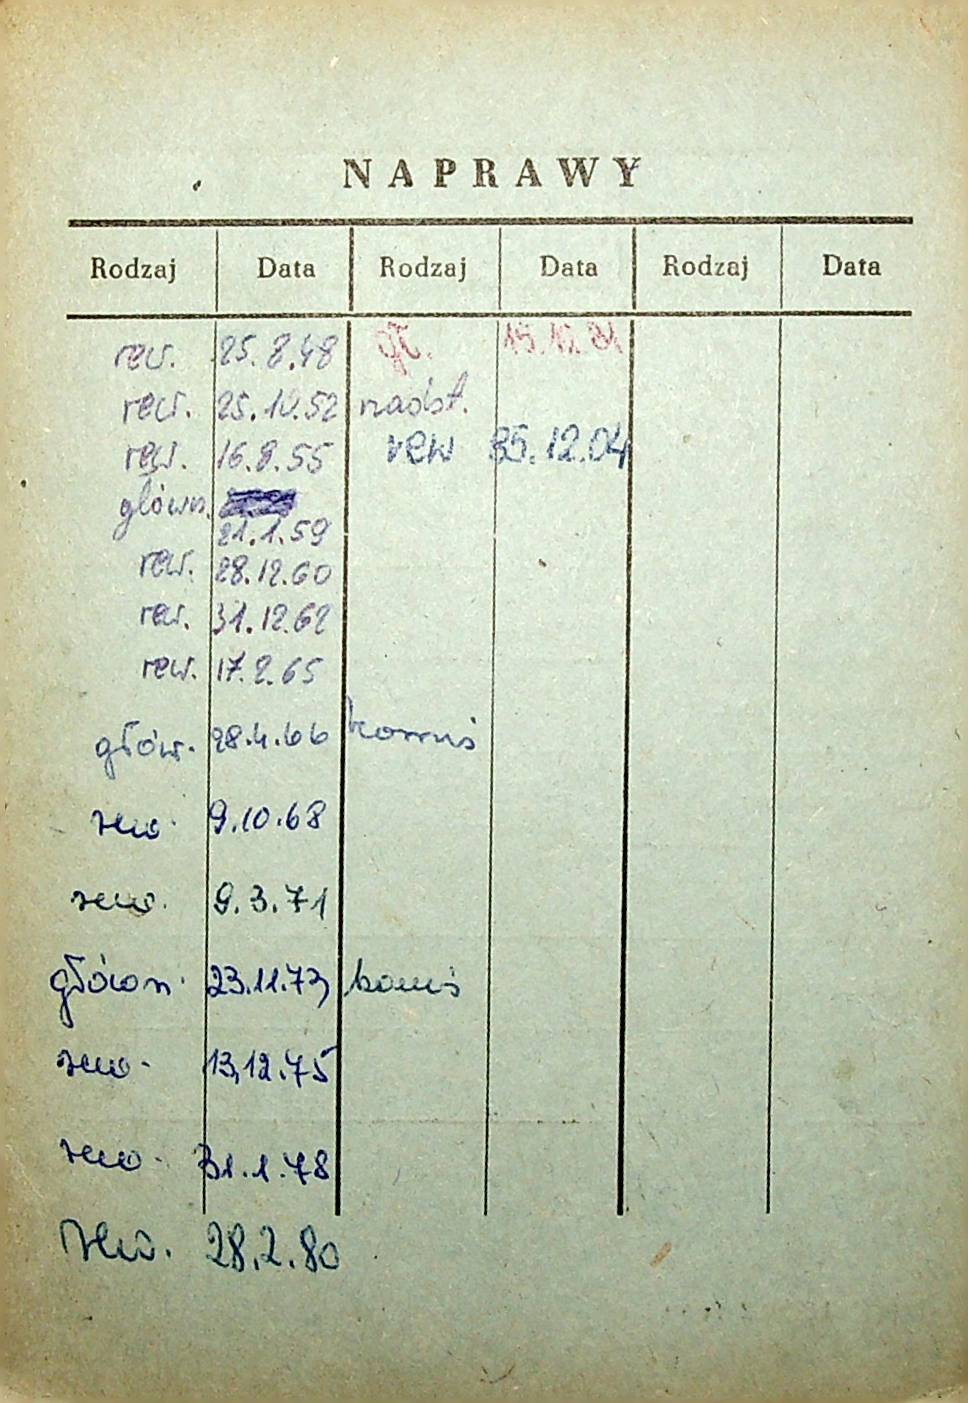 NAPRAWY
Rodzaj Data Rodzaj Data Rodzaj Data
rew. 25.8.48 gł. 15.12.81
rew. 25.10.52 nadst.
rew. 16.8.55 rew 85.12.04
główn.
21.1.59
rew. 28.12.60
rew. 31.12.62
rew. 17.2.65
głów. 28.4.66 komis
rew. 9.10.68
rew. 9.3.71
główn. 23.11.73 komis
rew. 13,12.75
rew. 31.1.78
rew. 28.2.80